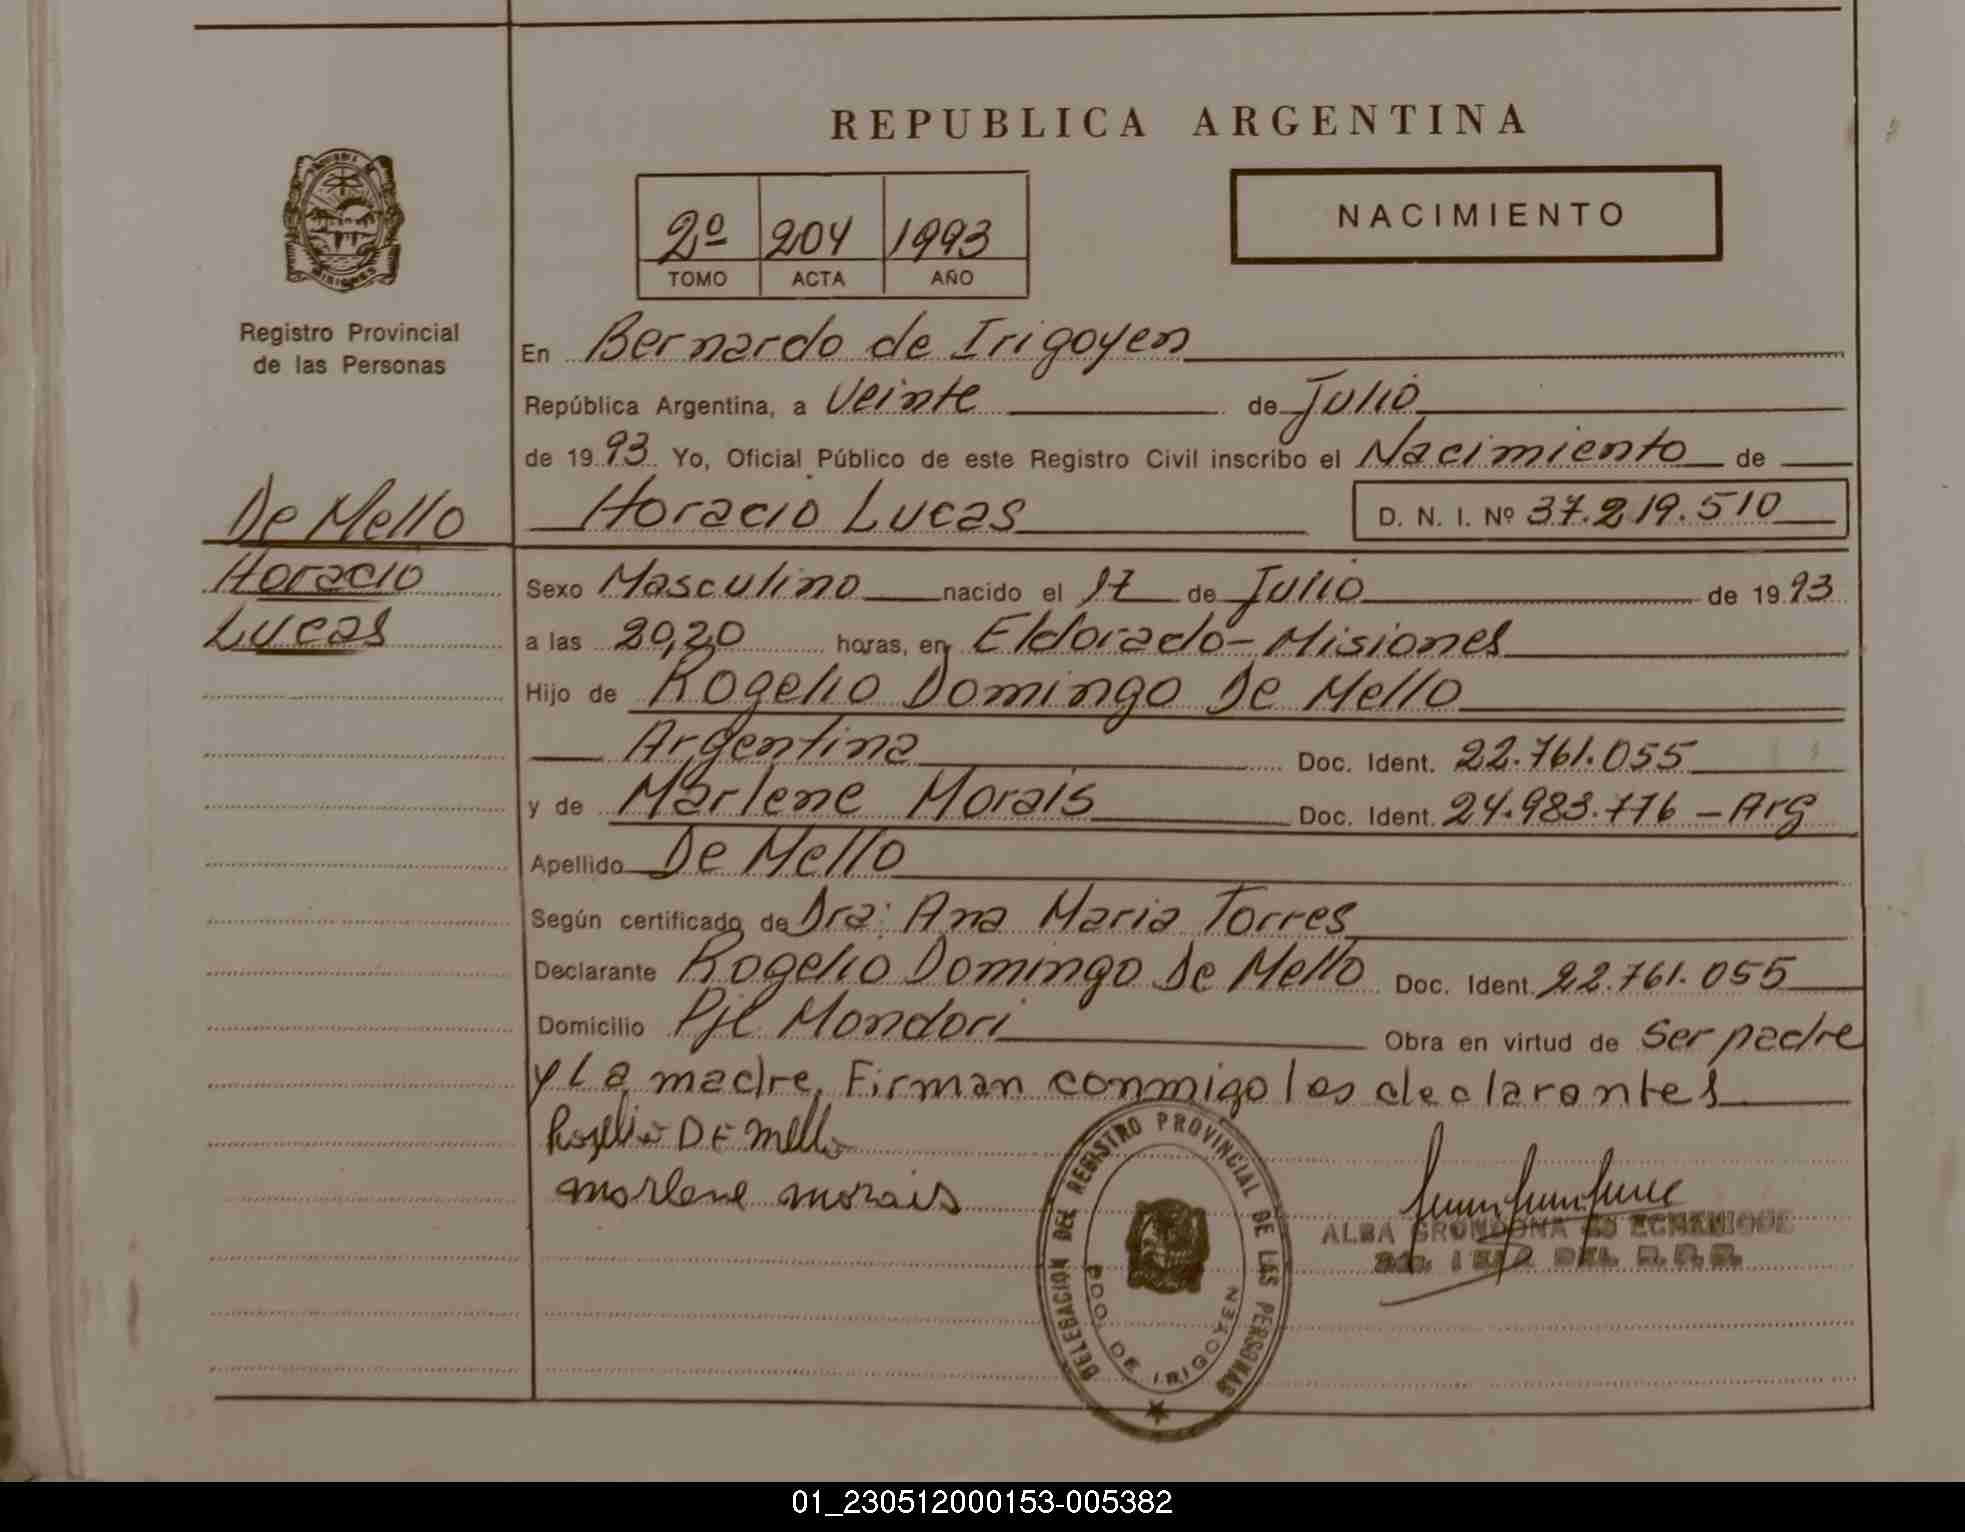 REPUBLICA ARGENTINA
NACIMIENTO
2º 204 1993
TOMO ACTA AÑO
MISIONES
Registro Provincial
de las Personas
De Mello
Horacio
Lucas
En Bernardo de Irigoyen
República Argentina, a Veinte de Julio
de 1993 Yo, Oficial Público de este Registro Civil inscribo el Nacimiento de
Horacio Lucas D. N. I. Nº 37.219.510
Sexo Masculino nacido el 17 de Julio de 1993
a las 20,20 horas, en Eldorado - Misiones
Hijo de Rogelio Domingo De Mello
Argentina Doc. Ident. 22.761.055
y de Marlene Morais Doc. Ident. 24.983.776 - Arg
Apellido De Mello
Según certificado de Dra: Ana Maria Torres
Declarante Rogelio Domingo De Mello Doc. Ident. 22.761.055
Domicilio Pje Mondori Obra en virtud de ser padre
y La madre. Firman conmigo los declarantes
Rogelio DE Mello
Marlene morais
DELEGACION DEL REGISTRO PROVINCIAL DE LAS PERSONAS
BDO. DE IRIGOYEN
ALBA GRONDONA de ECHENIQUE
DEL R.P.P.
01_230512000153-005382